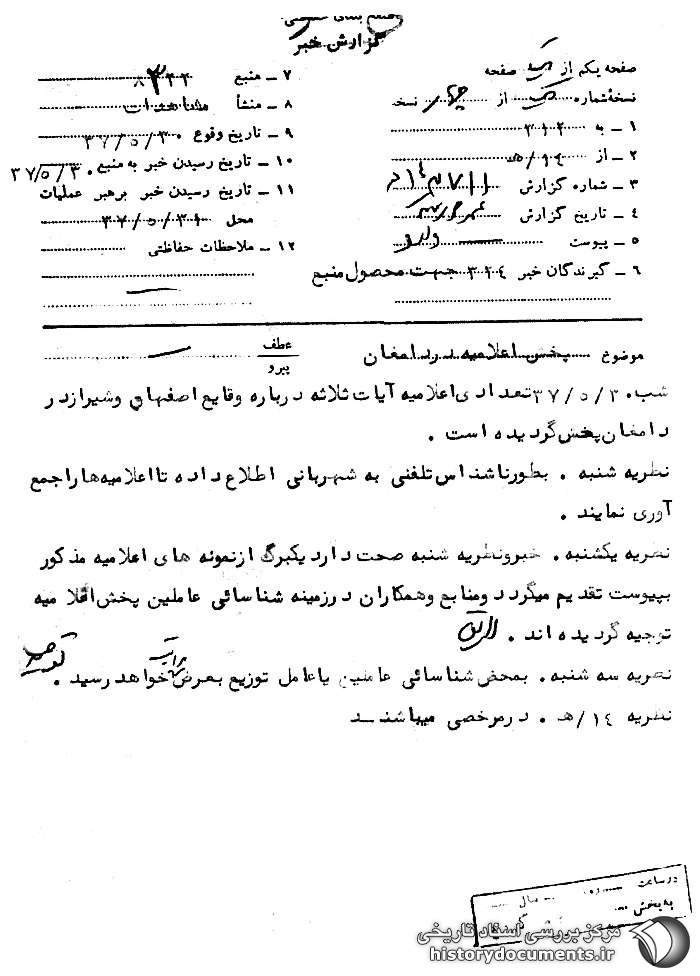 گزارش خبر
صفحه یکم از یک صفحه
نسخهٔ شماره یک از چهار نسخه
۱ – به ۳۱۲
۲ – از ۱۴/هـ
۳ – شماره گزارش
۴ – تاریخ گزارش
۵ – پیوست دارد
۶ – گیرندگان خبر ۳۲۴ جهت محصول منبع
۷ – منبع
۸ – منشأ مشاهدات
۹ – تاریخ وقوع ۳۷/۵/۳۰
۱۰ – تاریخ رسیدن خبر به منبع ۳۷/۵/۳۰
۱۱ – تاریخ رسیدن خبر برهبر عملیات
محل ۳۷/۵/۳۱
۱۲ – ملاحظات حفاظتی
موضوع پخش اعلامیه در دامغان
عطف
پیرو
شب ۳۷/۵/۳۰ تعدادی اعلامیه آیات ثلاثه درباره وقایع اصفهان و شیراز در
دامغان پخش گردیده است .
نظریه شنبه . بطور ناشناس تلفنی به شهربانی اطلاع داده تا اعلامیه‌ها را جمع
آوری نمایند .
نظریه یکشنبه . خبر و نظریه شنبه صحت دارد یکبرگ از نمونه های اعلامیه مذکور
بپیوست تقدیم میگردد و منابع و همکاران در زمینه شناسائی عاملین پخش اعلامیه
توجیه گردیده اند .
نظریه سه شنبه . بمحض شناسائی عاملین یا عامل توزیع بعرض خواهد رسید .
نظریه ۱۴/هـ . در مرخصی میباشند
در ساعت روز سال
به بخش
مرکز بررسی اسناد تاریخی
historydocuments.ir